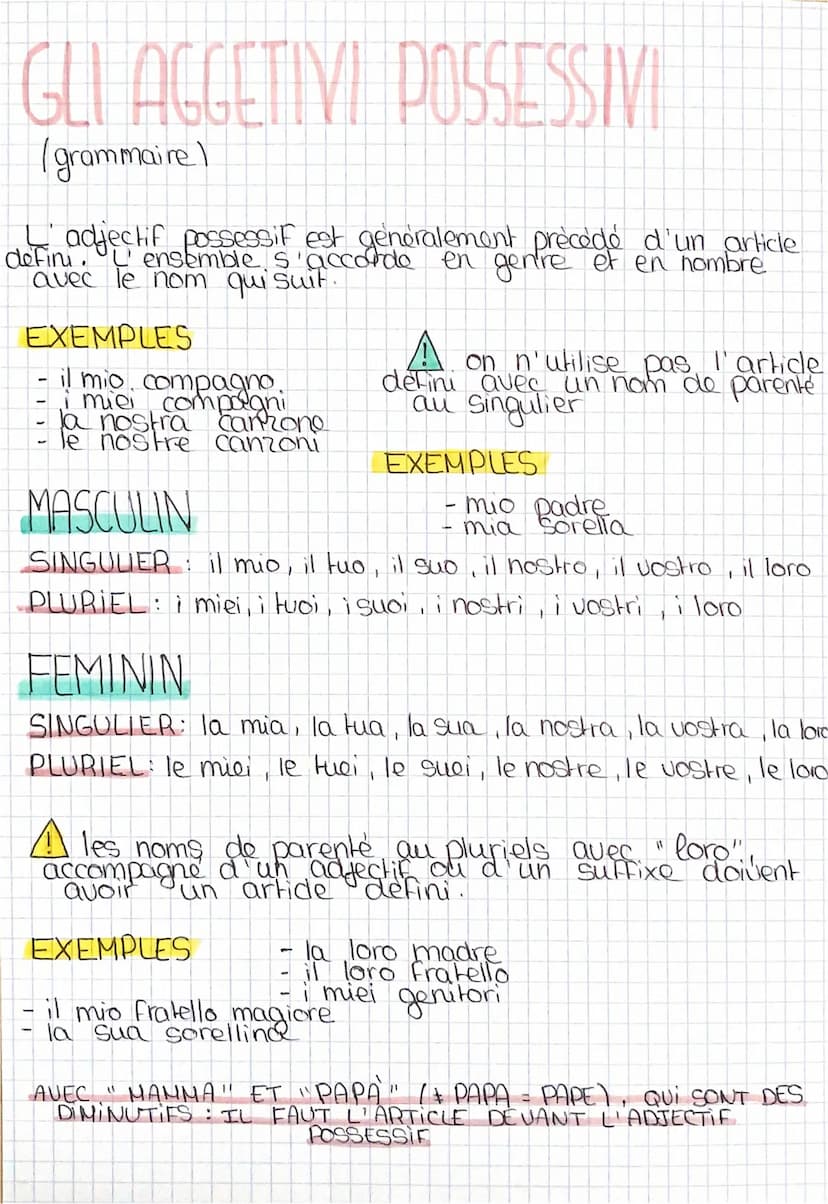 GLI AGGETIVI POSSESSIVI
(grammaire)
L'adjectif possessif est généralement précédé d'un article
défini. L'ensemble s'accorde en genre et en nombre
avec le nom qui suit.
EXEMPLES
- il mio compagno
- i miei compagni
- la nostra canzone
- le nostre canzoni
! on n'utilise pas l'article
défini avec un nom de parenté
au singulier
EXEMPLES
- mio padre
- mia sorella
MASCULIN
SINGULIER : il mio, il tuo, il suo, il nostro, il vostro, il loro
PLURIEL : i miei, i tuoi, i suoi, i nostri, i vostri, i loro
FEMININ
SINGULIER: la mia, la tua, la sua, la nostra, la vostra, la loro
PLURIEL: le miei, le tuei, le suei, le nostre, le vostre, le loro
! les noms de parenté au pluriels avec "loro",
accompagné d'un adjectif ou d'un suffixe doivent
avoir un article défini.
EXEMPLES
- la loro madre
- il loro fratello
- i miei genitori
- il mio fratello magiore
- la sua sorellina
AVEC "MAMMA" ET "PAPÀ" (≠ PAPA = PAPE), QUI SONT DES
DIMINUTIFS : IL FAUT L'ARTICLE DEVANT L'ADJECTIF
POSSESSIF